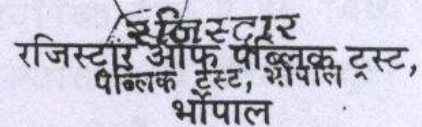 रजिस्ट्रार
रजिस्ट्रार ऑफ पब्लिक ट्रस्ट,
पब्लिक ट्रस्ट, भोपाल
भोपाल